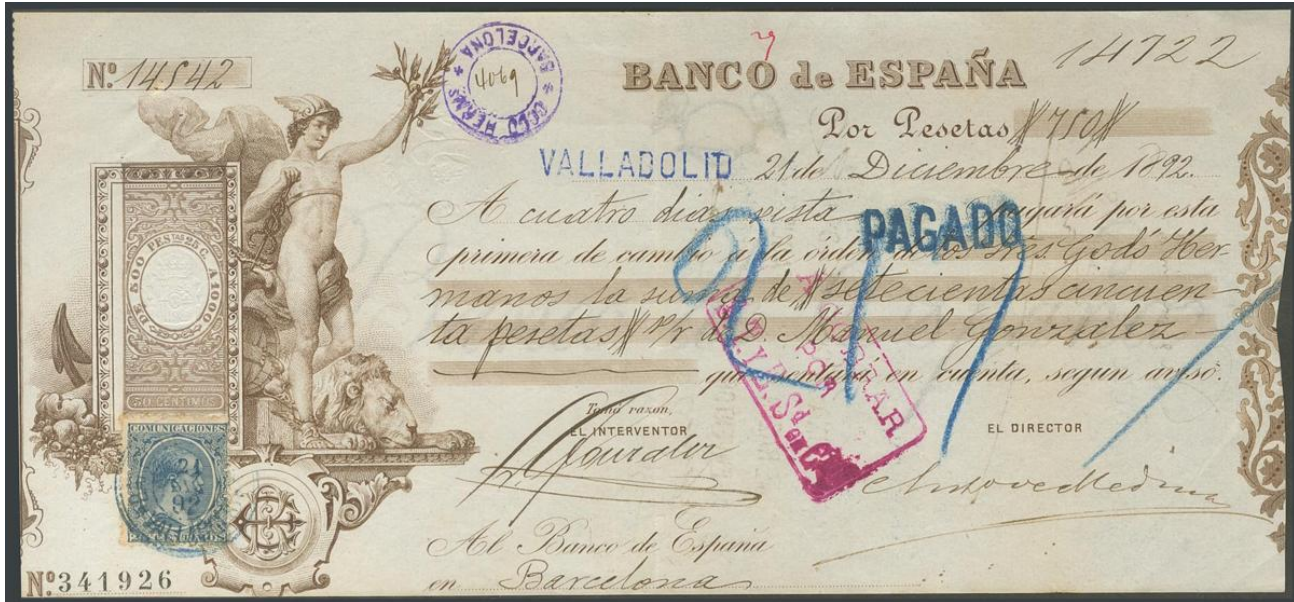 Nº 14542
GODÓ HERMS * BARCELONA *
4069
BANCO de ESPAÑA
14722
Por Pesetas 750
VALLADOLID 21 de Diciembre de 1892.
A cuatro dias vista pagará por esta
PAGADO
primera de cambio á la órden de los Sres. Godó Her-
manos la suma de setecientas cincuen
ta pesetas p/r de D. Manuel Gonzalez
que sentará en cuenta, segun aviso.
A COBRAR
POR
Sd en C
217
DE 500 PESTAS 25 C. A 1000
50 CENTIMOS
COMUNICACIONES
21
92
CENTIMOS
Tomó razon,
EL INTERVENTOR
EL DIRECTOR
Al Banco de España
en Barcelona
Nº 341926